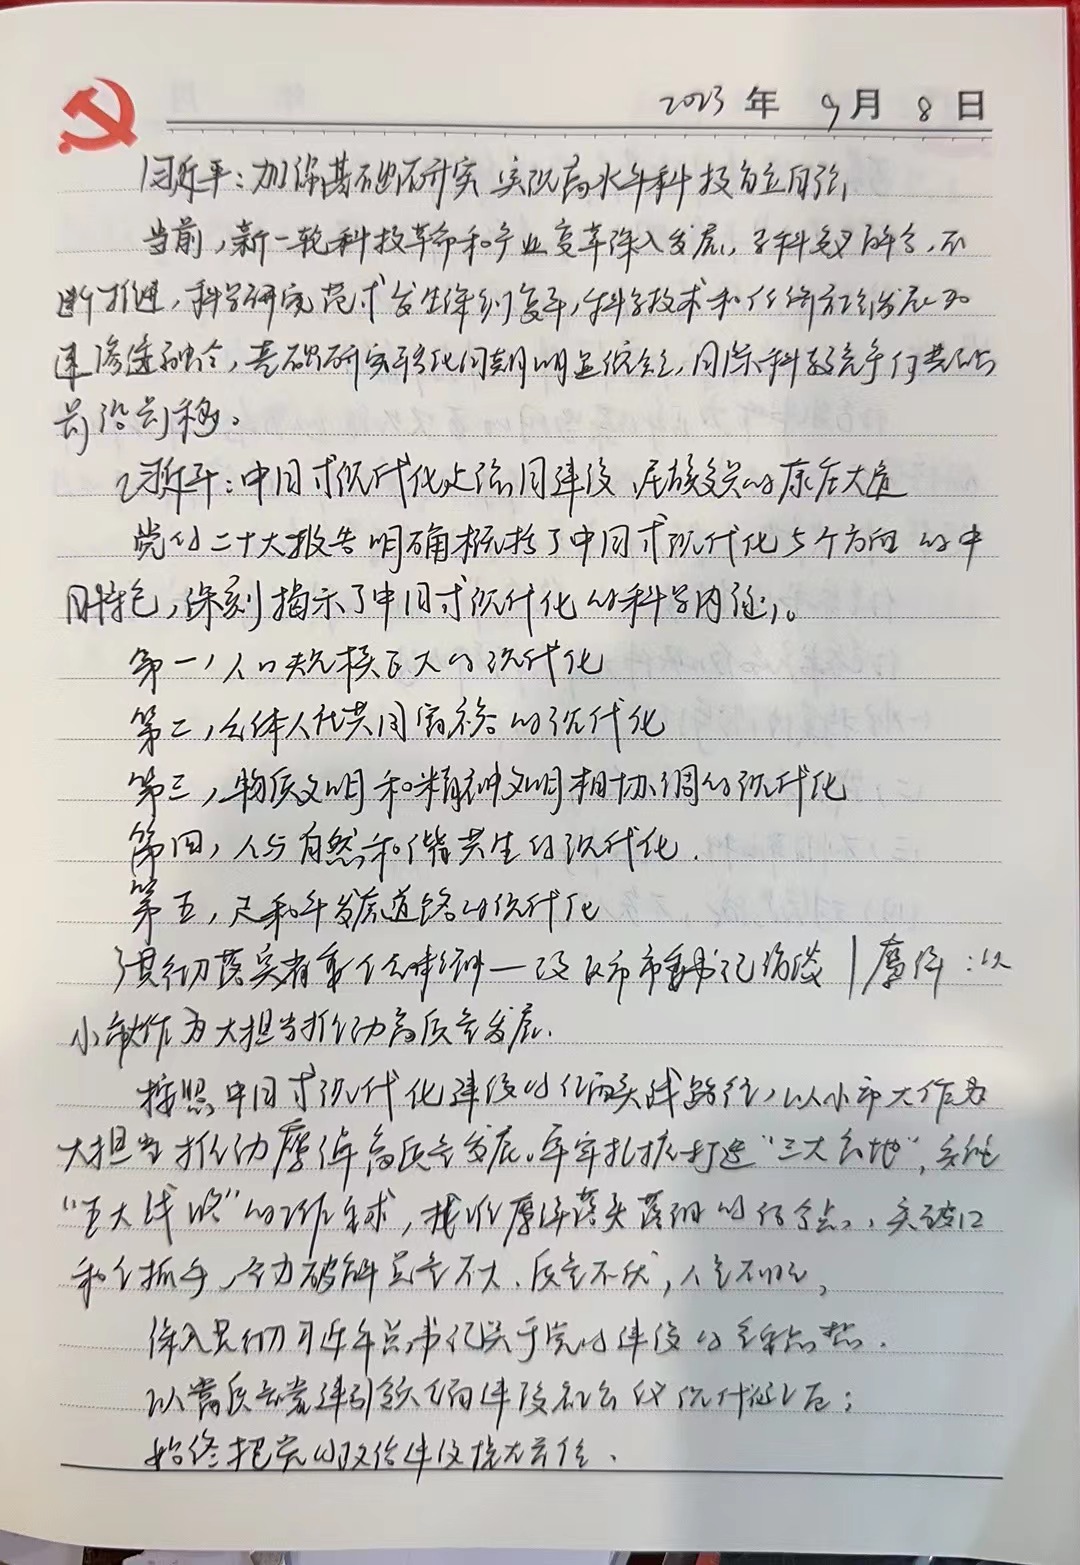 2023年 9月 8日
习近平：加强基础研究 实现高水平科技自立自强
当前，新一轮科技革命和产业变革深入发展，学科交叉融合，不
断推进，科学研究范式发生深刻变革，科学技术和经济社会发展加
速渗透融合，基础研究转化周期明显缩短，国际科技竞争向基础
前沿前移。
习近平：中国式现代化是强国建设、民族复兴的康庄大道
党的二十大报告明确概括了中国式现代化5个方面的中
国特色，深刻揭示了中国式现代化的科学内涵。
第一，人口规模巨大的现代化
第二，全体人民共同富裕的现代化
第三，物质文明和精神文明相协调的现代化
第四，人与自然和谐共生的现代化
第五，走和平发展道路的现代化
贯彻落实省委全会精神—设区市市委书记访谈｜鹰潭：以
小市作为大担当推动高质量发展.
按照中国式现代化建设的江西实践路径，以小市大作为
大担当推动鹰潭高质量发展。牢牢扎扎打造“三大高地”，实施
“五大战略”的工作要求，找准鹰潭落实落细的结合点、突破口
和主抓手，全力破解总量不大、质量不优，人气不旺，
深入贯彻习近平总书记关于党的建设的重要思想.
以高质量党建引领江西建设社会主义现代化；
始终把党的政治建设摆在首位.